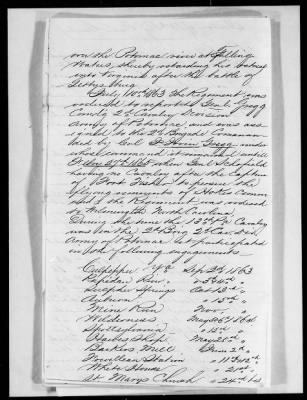 on the Potomac river at Falling
Waters, thereby retarding his retreat
into Virginia after the battle of
Gettysburg
July 10th 1863 The Regiment was
ordered to report to Genl. Gregg
Comdg 2d Cavalry Division
Army of Potomac and was ass-
igned to the 2d Brigade Comman-
ded by Col J Irvin Gregg under
whose command it remained until
Feby 1865 when Genl Schofield
having no Cavalry after the Capture
of Fort Fisher to pursue the
flying remnants of Hokes Comm-
and the Regiment was ordered
to Wilmington North Carolina
During the time the 13th Pa Cavalry
was in the 2d Brig 2d Cav. Div
Army of Potomac it participated
in the following engagements
Culpepper Va Sep 1863
Rapidan Run
Sulphur Springs Oct 12th "
Auburn " 15th "
Mine Run Nov
Wilderness May 1864
Spottsylvania "
Hawes Shop May 28th "
Barkers Mill June 2d "
Trevillian Station " 11th & 12th "
White House " 21st "
St Marys Church " 24th 64